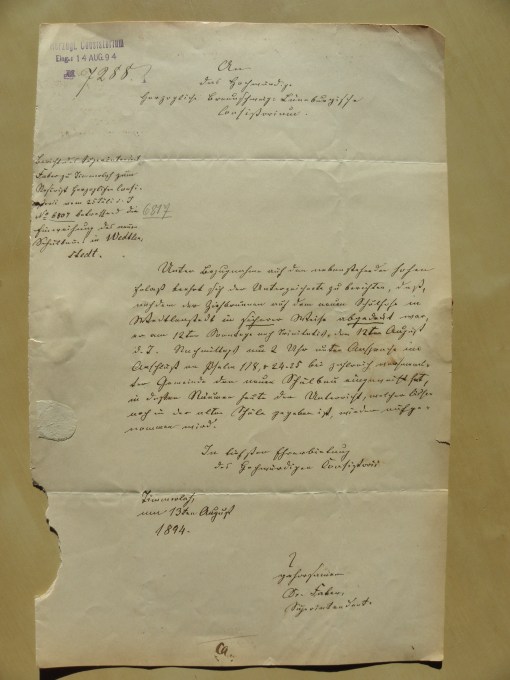 Herzogl. Consistorium
Eing.: 14 AUG. 94
7288.
An
das Hochwürdige
Herzogliche Braunschweig-Lüneburgische
Consistorium.
Bericht des Superintendent
Faber zu Timmerlah zum
Rescript Herzoglichen Consi-
vom 25 Juli d. J.
No 6807 betreffend die
Einweihung des neuen
Schulbaus in Wedtlen-
stedt.
6817
Unter Bezugnahme auf den nebenstehenden hohen
Erlaß beehrt sich der Unterzeichnete zu berichten, daß,
nachdem der Ziehbrunnen auf dem neuen Schulhofe in
Wedtlenstedt in sicherer Weise abgedeckt war,
er am 12ten Sonntage nach Trinitatis, den 12ten August
d. J. Nachmittags um 2 Uhr unter Ansprache im
Anschluß an Psalm 118, v 24-25 bei zahlreich versammel-
ter Gemeinde den neuen Schulbau eingeweiht hat,
in dessen Räumen heute der Unterricht, welcher bisher
noch in der alten Schule gegeben ist, wieder aufge-
nommen wird.
In tiefster Ehrerbietung
des Hochwürdigen Consistorii
Timmerlah,
am 13ten August
1894.
gehorsamer
Dr. Faber,
Superintendent.